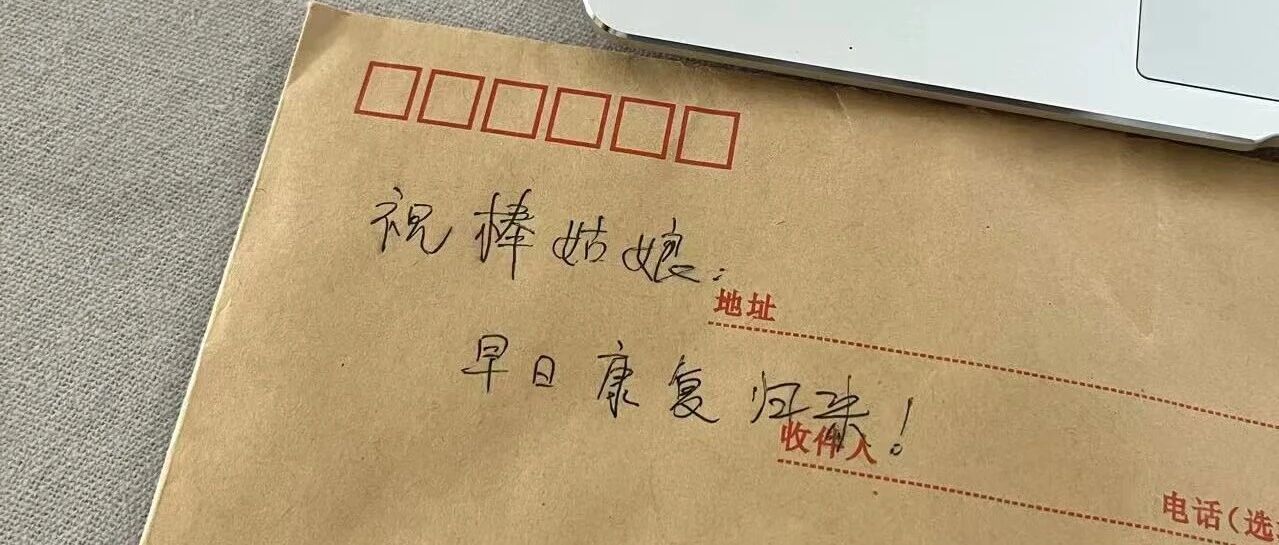 祝棒姑娘:
地址
早日康复归来!
收件人
电话(选